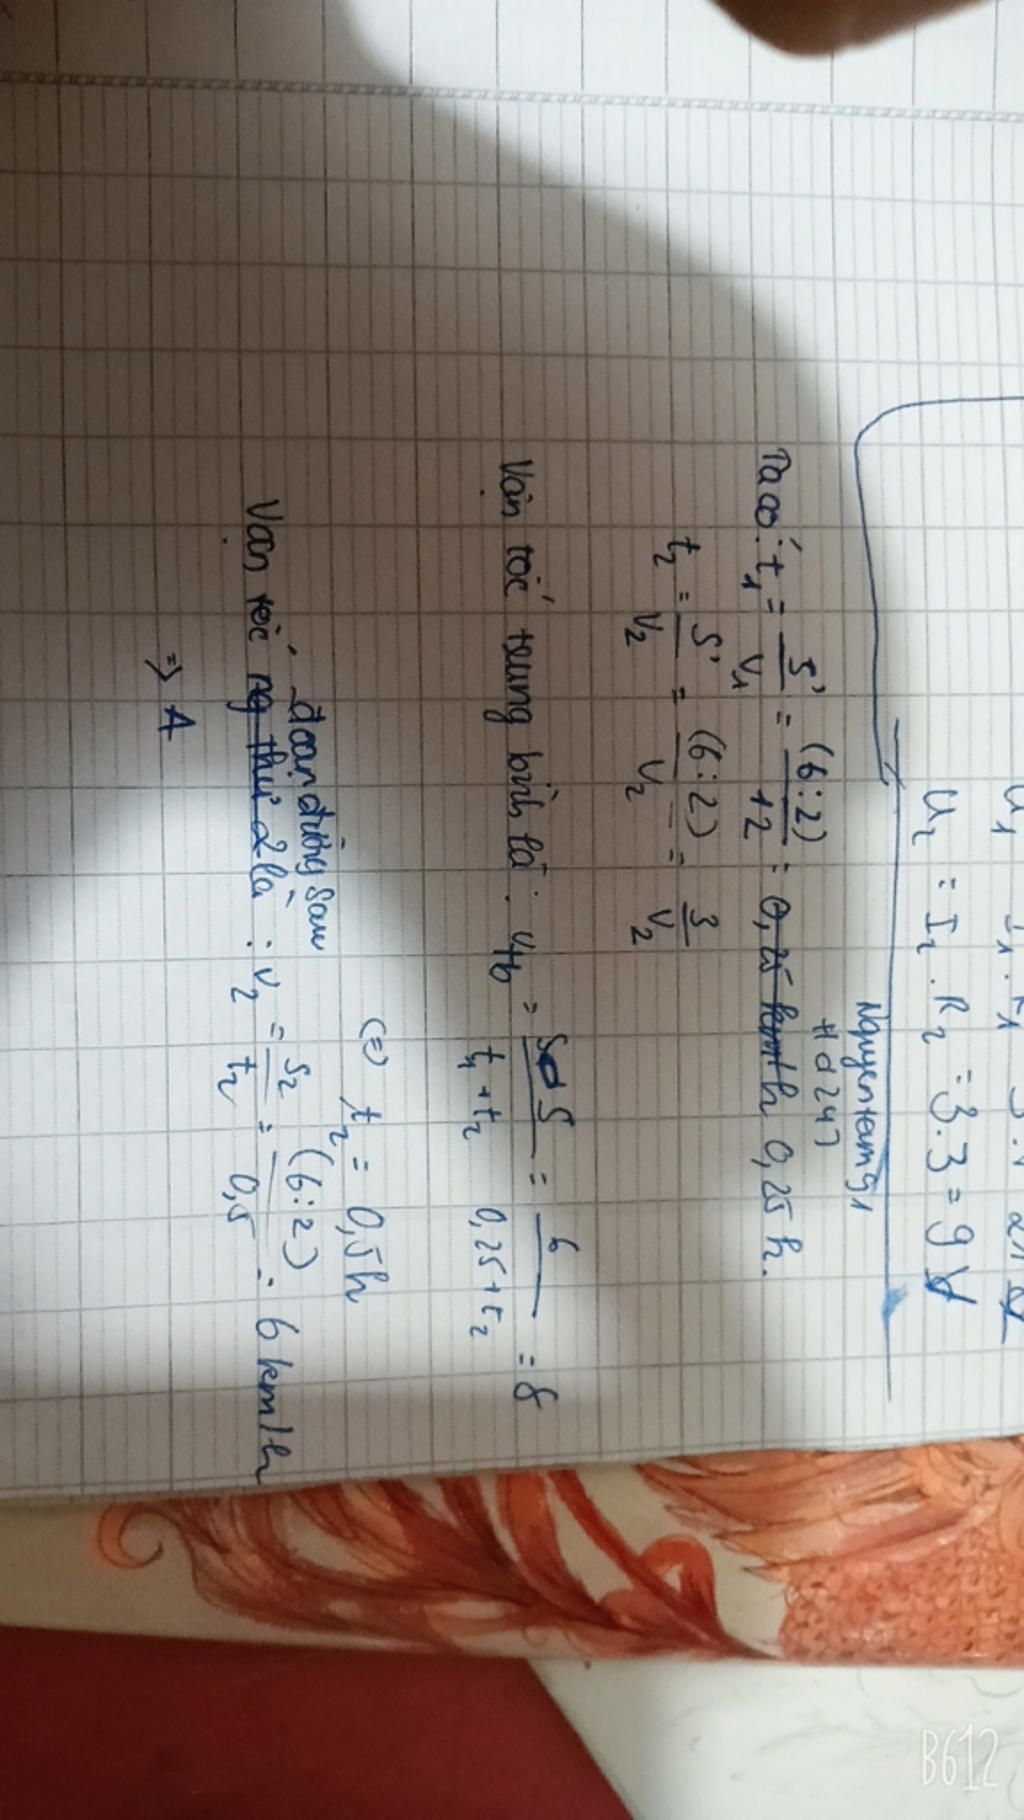 U₂ = I₂ . R₂ = 3.3 = 9 V
Nguyentamg1
Hd247
Ta có: t₁ = S'/V₁ = (6:2)/12 = 0,25 km/h 0,25 h.
t₂ = S'/V₂ = (6:2)/V₂ = 3/V₂
Vận tốc trung bình là: vtb = S/(t₁ + t₂) = 6/(0,25 + t₂) = 8
(=) t₂ = 0,5h
đoạn đường sau
Vận tốc ng thứ 2 là : v₂ = S₂/t₂ = (6:2)/0,5 = 6 km/h
=> A
B612